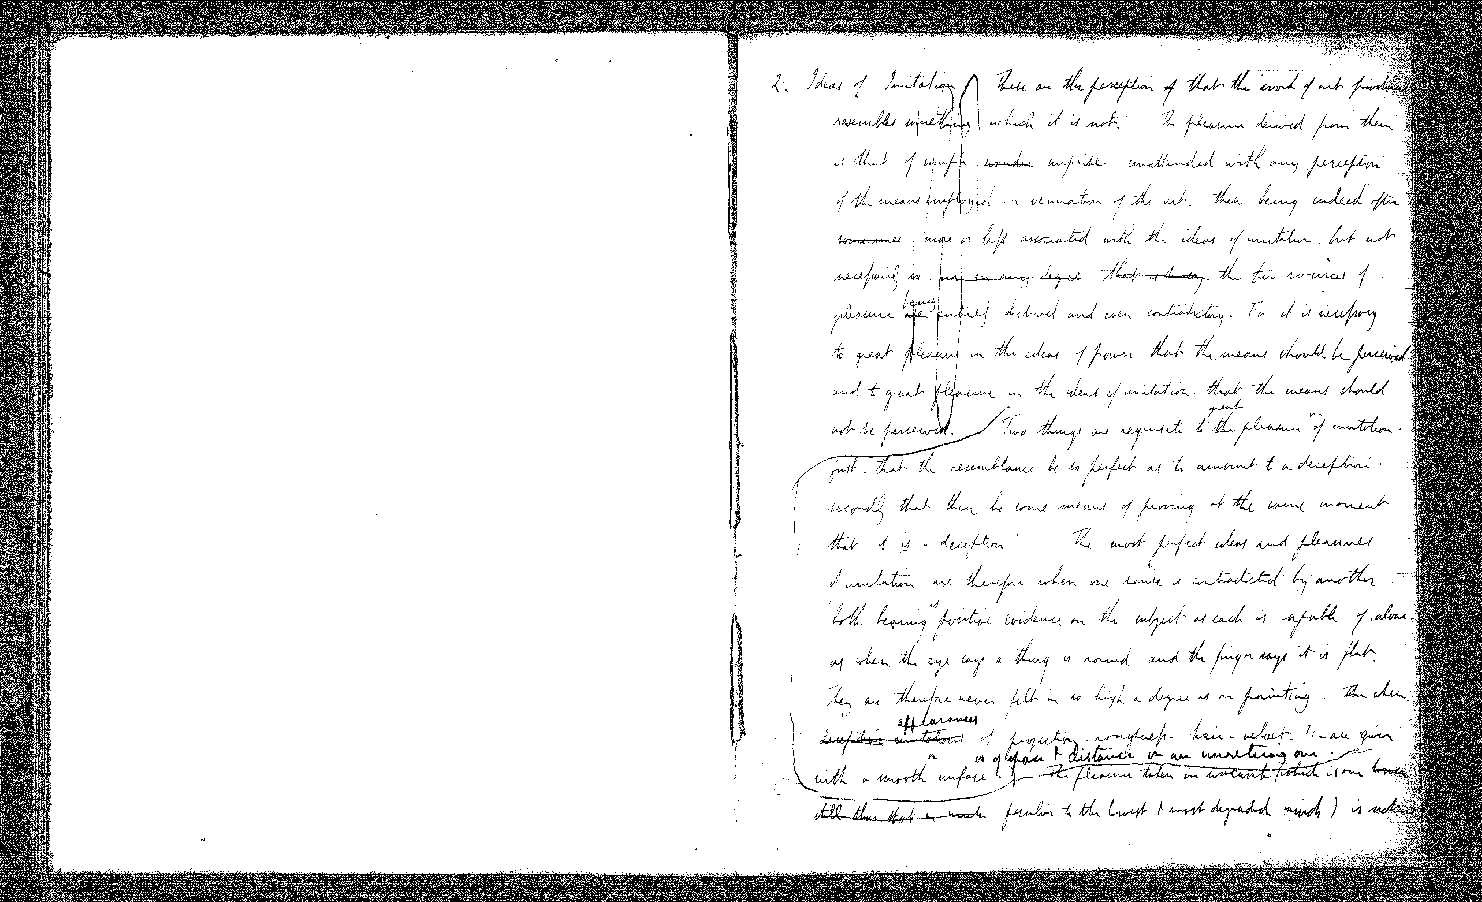 2. Ideas of Imitation These are the perception of that the work of art produced
resembles something which it is not. The pleasure derived from them
is that of simple wonder surprise unattended with any perception
of the means employed or veneration of the art. these being indeed often
more or less associated with the ideas of imitation. but not
necessarily so. nor in any degree that is to say the two sources of
pleasure being entirely distinct and even contradictory. For it is necessary
to great pleasure in the ideas of power that the means should be perceived
and to great pleasure in the ideas of imitation that the means should
not be perceived. Two things are requisite to the great pleasure of imitation.
first. that the resemblance be so perfect as to amount to a deception.
secondly that there be some means of proving at the same moment
that it is a deception The most perfect ideas and pleasures
of imitation are therefore when one sense is contradicted by another
both bearing as positive evidence on the subject as each is capable of alone.
as when the eye says a thing is round and the finger says it is flat.
They are therefore never felt in so high a degree as in painting. Then when
appearances
of projection - roughness - hair - velvet are given
is of space & distance on an unretiring one.
with a smooth surface The pleasure taken in which is one
still peculiar to the lowest & most degraded minds) is